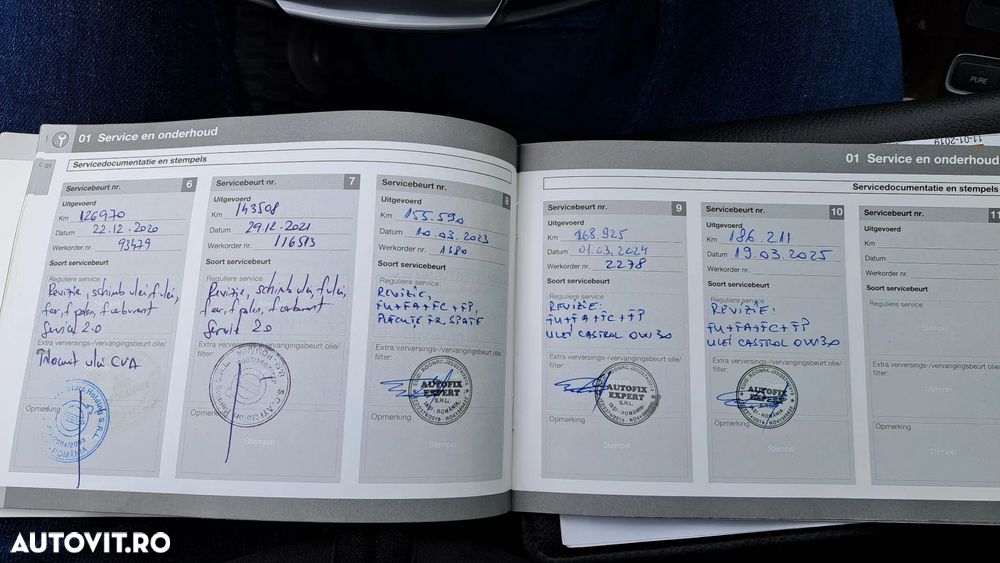 PURE
11-01-2019
01 Service en onderhoud
01
Servicedocumentatie en stempels
Servicebeurt nr. 6
Uitgevoerd
Km 126970
Datum 22.12.2020
Werkorder nr. 93479
Soort servicebeurt
Reguliere service
Revizie, schimb ulei, f ulei,
f aer, f polen, f carburant
Service 2.0
Extra verversings-/vervangingsbeurt olie/
filter:
Inlocuit ulei CVA
Opmerking
ROMÂNIA
Servicebeurt nr. 7
Uitgevoerd
Km 143508
Datum 29.12.2021
Werkorder nr. 116513
Soort servicebeurt
Reguliere service
Revizie, schimb ulei, f ulei,
f aer, f polen, f carburant
Service 2.0
Extra verversings-/vervangingsbeurt olie/
filter:
Opmerking
Stempel
Servicebeurt nr. 8
Uitgevoerd
Km 155.590
Datum 10.03.2023
Werkorder nr. 1680
Soort servicebeurt
Reguliere service
REVIZIE,
FU+FA+FC+FP,
PLACUTE FR SPATE
Extra verversings-/vervangingsbeurt olie/
filter:
AUTOFIX
EXPERT
S.R.L.
IASI - ROMÂNIA
Opmerking
Stempel
01 Service en onderhoud
Servicedocumentatie en stempels
Servicebeurt nr. 9
Uitgevoerd
Km 168.925
Datum 01.03.2024
Werkorder nr. 2278
Soort servicebeurt
Reguliere service
REVIZIE:
FU+FA+FC+FP
ULEI CASTROL 0W30
Extra verversings-/vervangingsbeurt olie/
filter:
AUTOFIX
EXPERT
S.R.L.
IASI - ROMÂNIA
Opmerking
Stempel
Servicebeurt nr. 10
Uitgevoerd
Km 186.211
Datum 19.03.2025
Werkorder nr.
Soort servicebeurt
Reguliere service
REVIZIE:
FU+FA+FC+FP
ULEI CASTROL 0W30
Extra verversings-/vervangingsbeurt olie/
filter:
AUTOFIX
EXPERT
S.R.L.
IASI - ROMÂNIA
Opmerking
Stempel
Servicebeurt nr. 11
Uitgevoerd
Km
Datum
Werkorder nr.
Soort servicebeurt
Reguliere service
Stempel
Extra verversings-/vervangingsbeurt olie/
filter:
Stempel
Opmerking
Stempel
AUTOVIT.RO